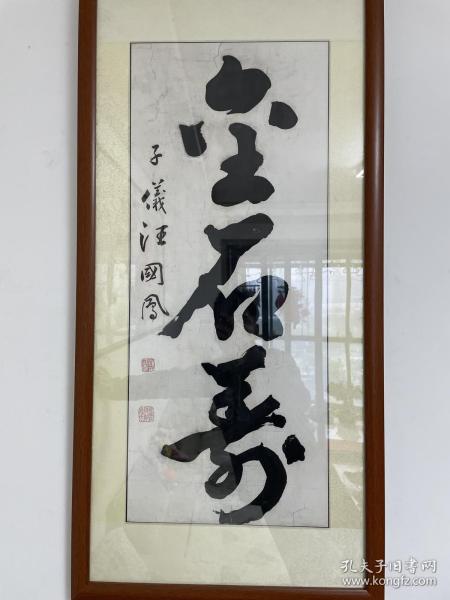 金石寿
子儀汪國鳳
孔夫子旧书网
www.kongfz.com